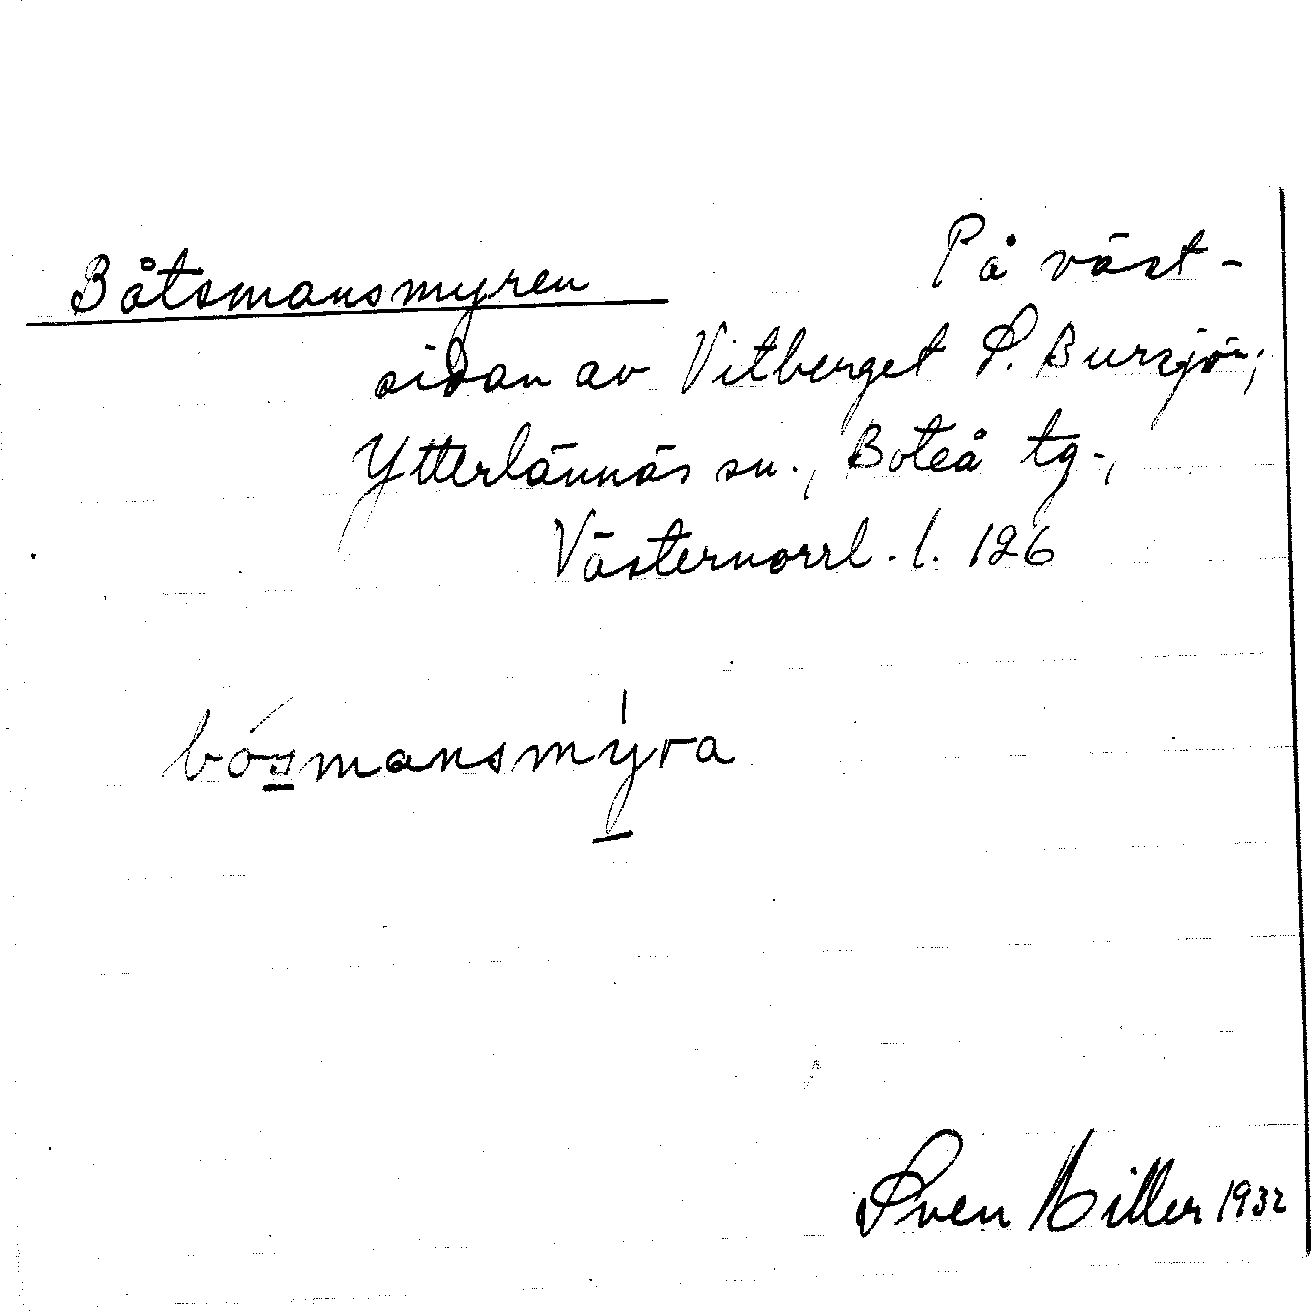 Båtsmansmyren På väst-
sidan av Vitberget S. Bursjön;
Ytterlännäs sn., Boteå tg.,
Västernorrl. l. 126
bósmansmýra
Sven 1932